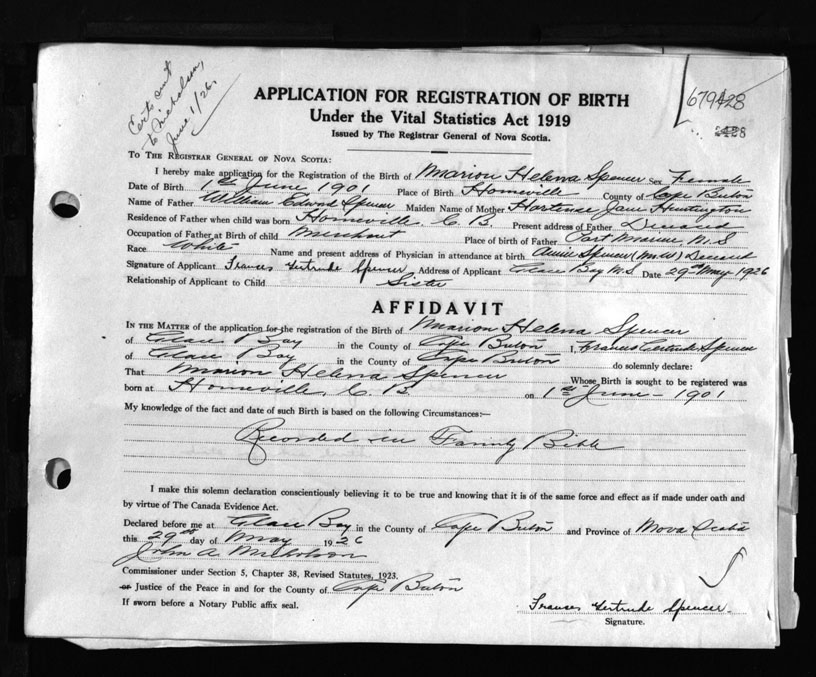 Certs sent
to Nicholson,
June 1/26.
679428
428
APPLICATION FOR REGISTRATION OF BIRTH
Under the Vital Statistics Act 1919
Issued by The Registrar General of Nova Scotia.
To The Registrar General of Nova Scotia:
I hereby make application for the Registration of the Birth of Marion Helena Spencer Sex Female
Date of Birth 1st June 1901 Place of Birth Homeville County of Cape Breton
Name of Father William Edward Spencer Maiden Name of Mother Hortense Jane Huntington
Residence of Father when child was born Homeville, C. B. Present address of Father Deceased
Occupation of Father at Birth of child Merchant Place of birth of Father Port Morien, N.S
Race White Name and present address of Physician in attendance at birth Annie Spencer (M.W) Deceased
Signature of Applicant Frances Gertrude Spencer Address of Applicant Glace Bay N.S Date 29th May 1926
Relationship of Applicant to Child Sister
AFFIDAVIT
In the Matter of the application for the registration of the Birth of Marion Helena Spencer
of Glace Bay in the County of Cape Breton I, Frances Gertrude Spencer
of Glace Bay in the County of Cape Breton do solemnly declare:
That Marion Helena Spencer Whose Birth is sought to be registered was
born at Homeville, C. B on 1st June - 1901
My knowledge of the fact and date of such Birth is based on the following Circumstances:—
Recorded in Family Bible
I make this solemn declaration conscientiously believing it to be true and knowing that it is of the same force and effect as if made under oath and
by virtue of The Canada Evidence Act.
Declared before me at Glace Bay in the County of Cape Breton and Province of Nova Scotia
this 29th day of May 1926
John A. Nicholson
Commissioner under Section 5, Chapter 38, Revised Statutes, 1923.
or Justice of the Peace in and for the County of Cape Breton
If sworn before a Notary Public affix seal.
Frances Gertrude Spencer.
Signature.